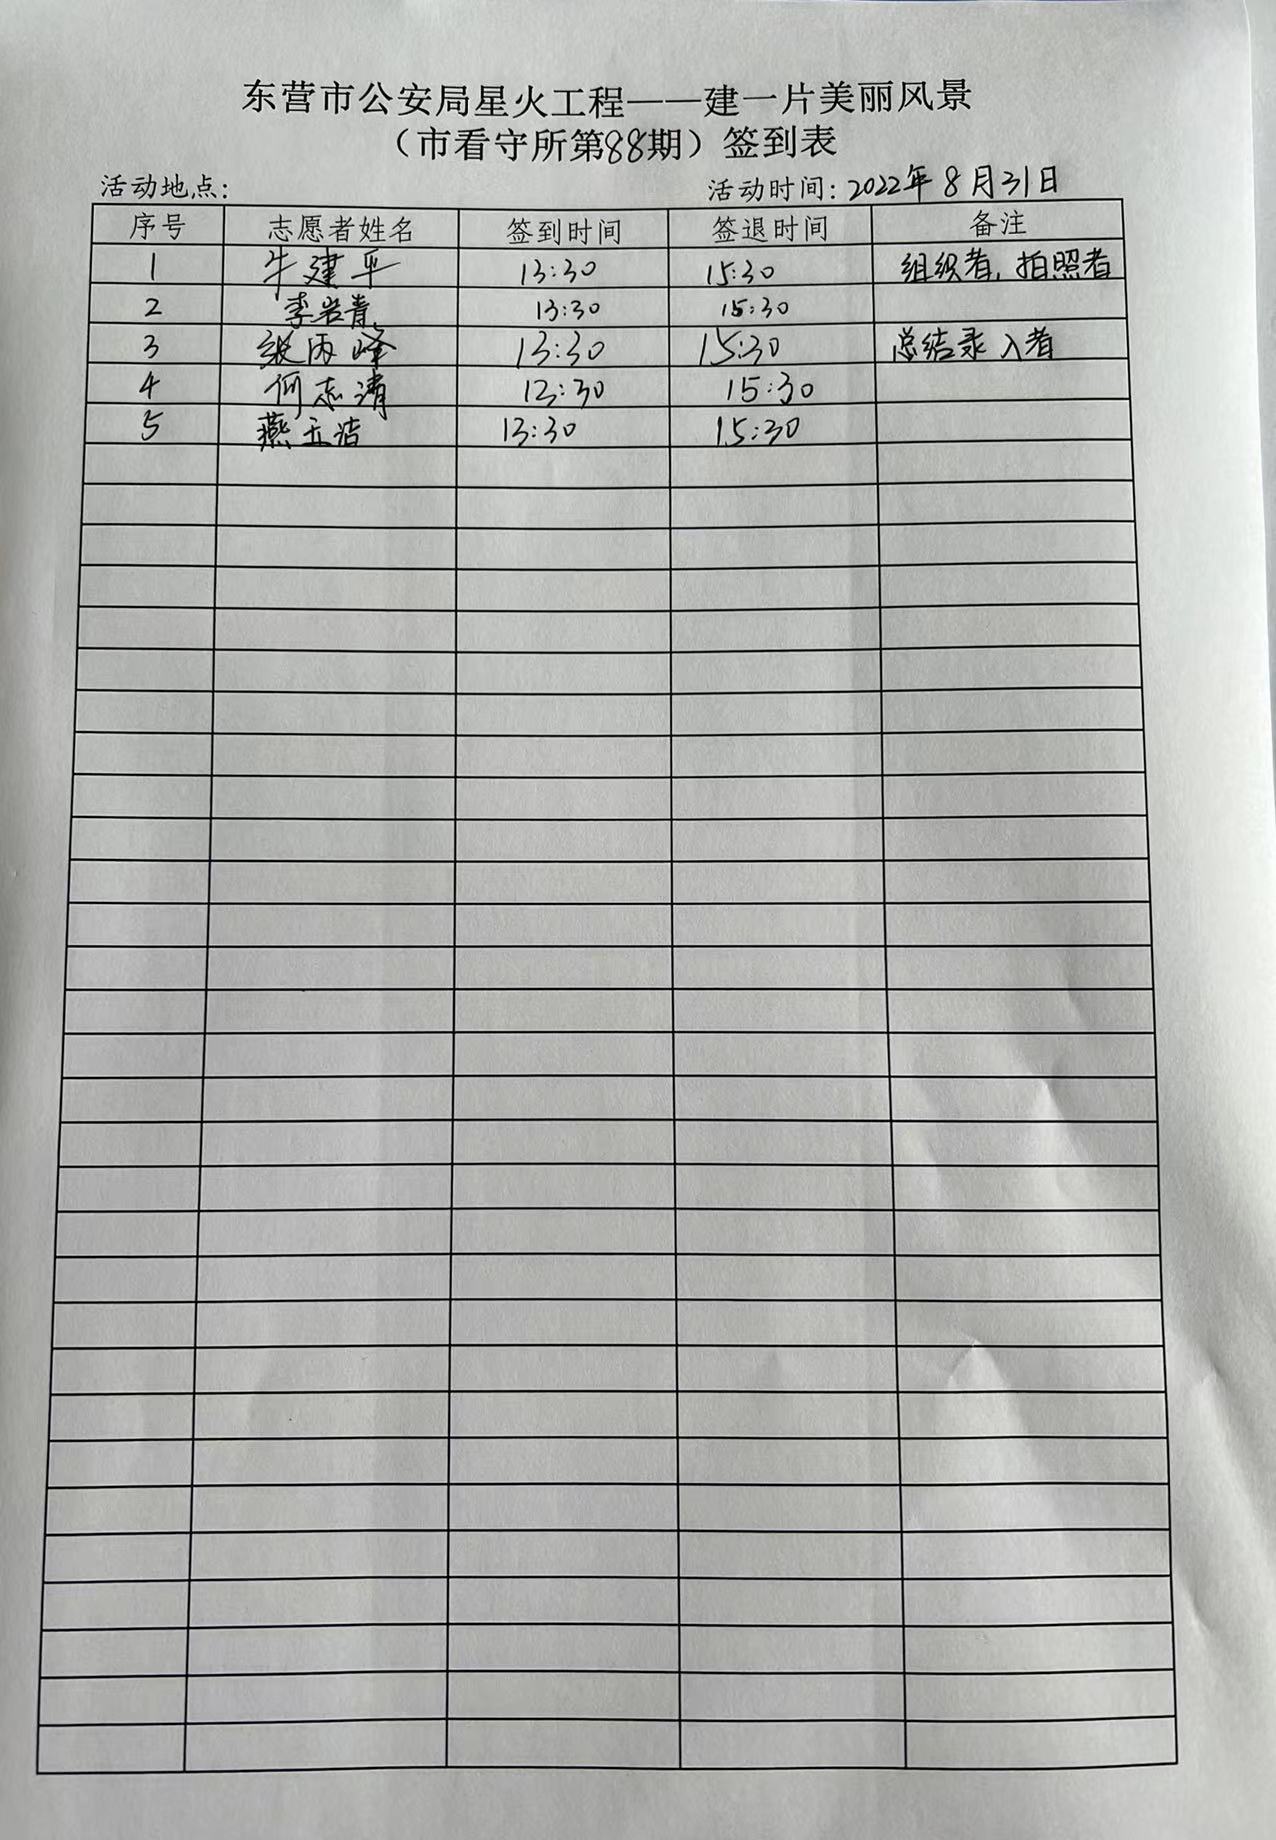 东营市公安局星火工程——建一片美丽风景
（市看守所第88期）签到表
活动地点： 活动时间：2022年8月31日
序号 志愿者姓名 签到时间 签退时间 备注
1 牛建平 13:30 15:30 组织者，拍照者
2 李岩青 13:30 15:30
3 13:30 15:30 总结录入者
4 何志清 13:30 15:30
5 燕玉洁 13:30 15:30